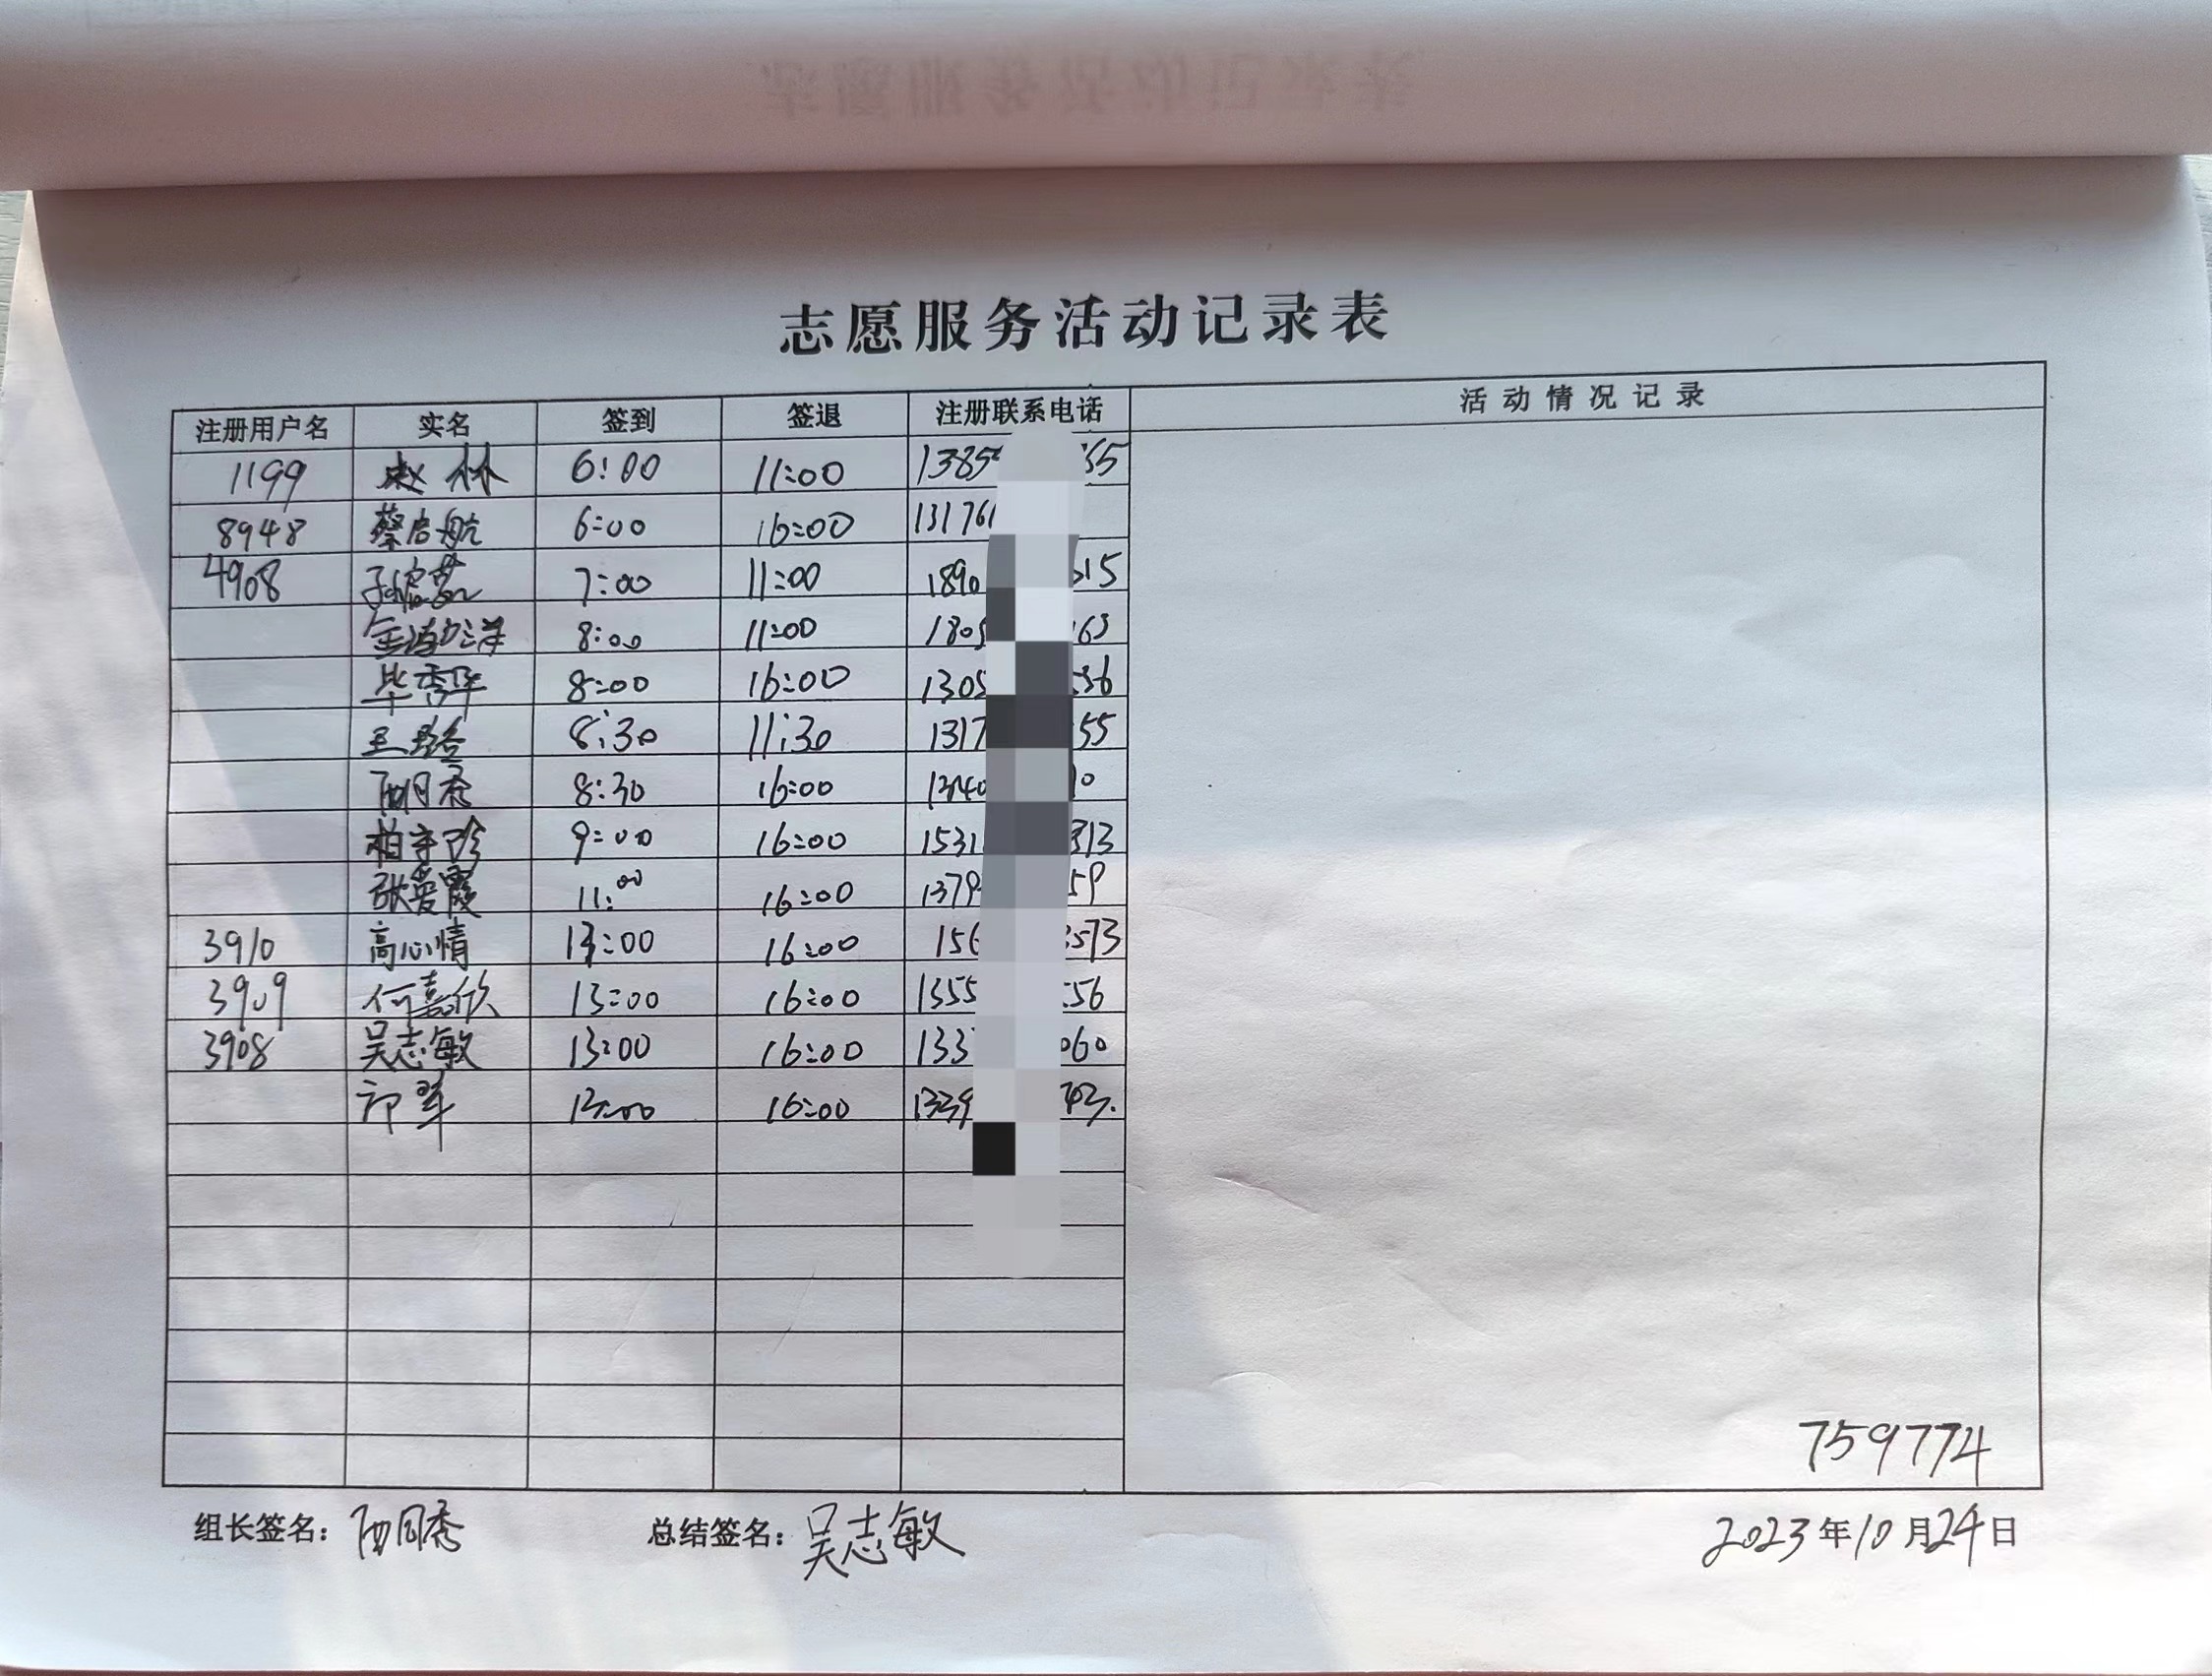 志愿服务活动记录表
注册用户名 实名 签到 签退 注册联系电话 活动情况记录
1199 赵林 6:00 11:00 1385 55
8948 蔡启航 6:00 16:00 131761
4908 7:00 11:00 1890 315
8:00 11:00 1805 63
毕秀华 8:00 16:00 1305 36
8:30 11:30 1317 55
8:30 16:00 1340 10
柏宇珍 9:00 16:00 1531 313
张爱霞 11:00 16:00 1379 59
3910 高心情 13:00 16:00 156 3573
3909 何嘉欣 13:00 16:00 1355 56
3908 吴志敏 13:00 16:00 133 060
13:00 16:00 1339 43.
759774
组长签名: 总结签名: 吴志敏 2023年10月24日